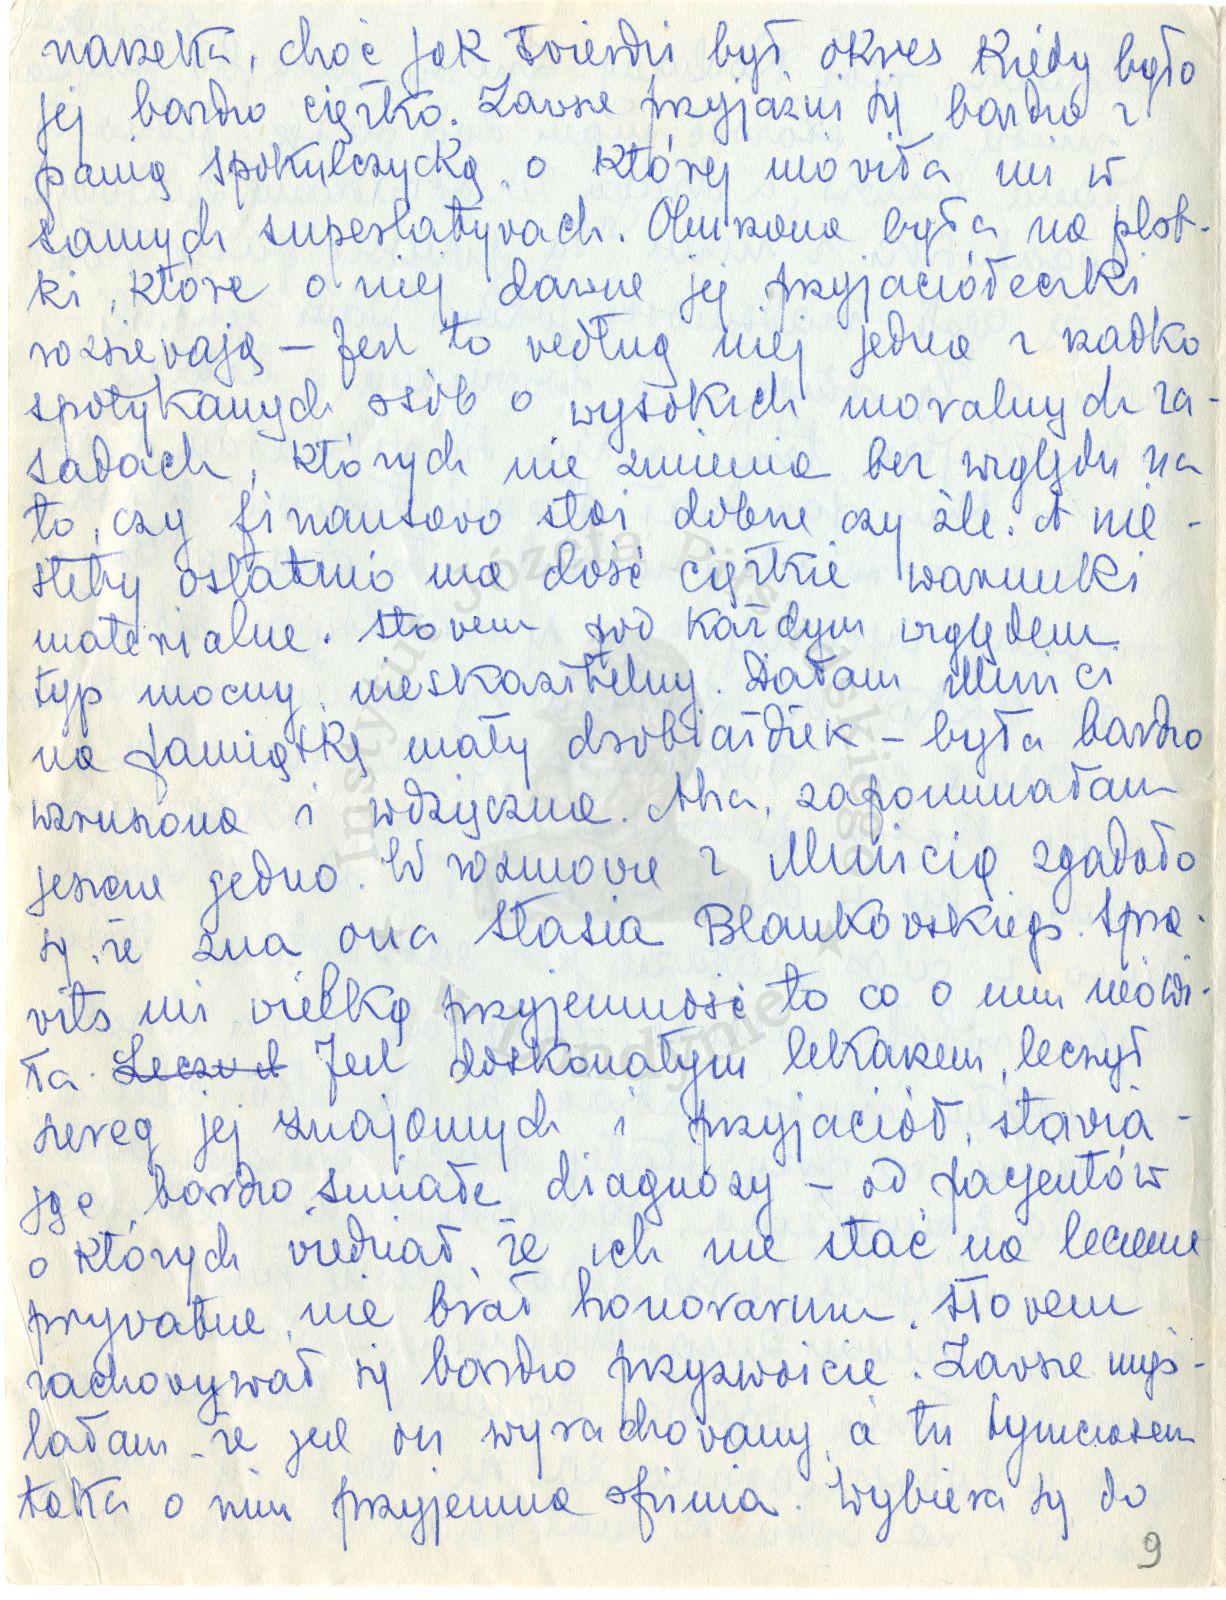 narzeka, choć jak twierdzi był okres kiedy było
jej bardzo ciężko. Zawsze przyjaźni się bardzo z
panią Spokulczycką o której mówiła mi w
samych superlatywach. Oburzona była na plot-
ki, które o niej dawne jej przyjaciółeczki
rozsiewają – Jest to według niej jedna z rzadko
spotykanych osób o wysokich moralnych za-
sadach, których nie zmienia bez względu na
to, czy finansowo stoi dobrze czy źle. A nie-
stety ostatnio ma dość ciężkie warunki
materialne. Słowem pod każdym względem
typ mocny, nieskazitelny. Dałam Munici
na pamiątkę mały drobiaździek – była bardzo
wzruszona i wdzięczna. Aha, zapomniałam
jeszcze jedno. W rozmowie z Municią zgadało
się, że zna ona Stasia Blankowskiego. Spra-
wiło mi wielką przyjemność to co o nim mówi-
ła. Leczył Jest doskonałym lekarzem, leczył
szereg jej znajomych i przyjaciół, stawia-
jąc bardzo śmiałe diagnozy – od pacjentów
o których wiedział, że ich nie stać na leczenie
prywatne, nie brał honorarium. Słowem
zachowywał się bardzo przyzwoicie. Zawsze myś-
lałam, że jest on wyrachowany, a tu tymczasem
taka o nim przyjemna opinia. Wybiera się do
9
Instytut Józefa Piłsudskiego
w Londynie